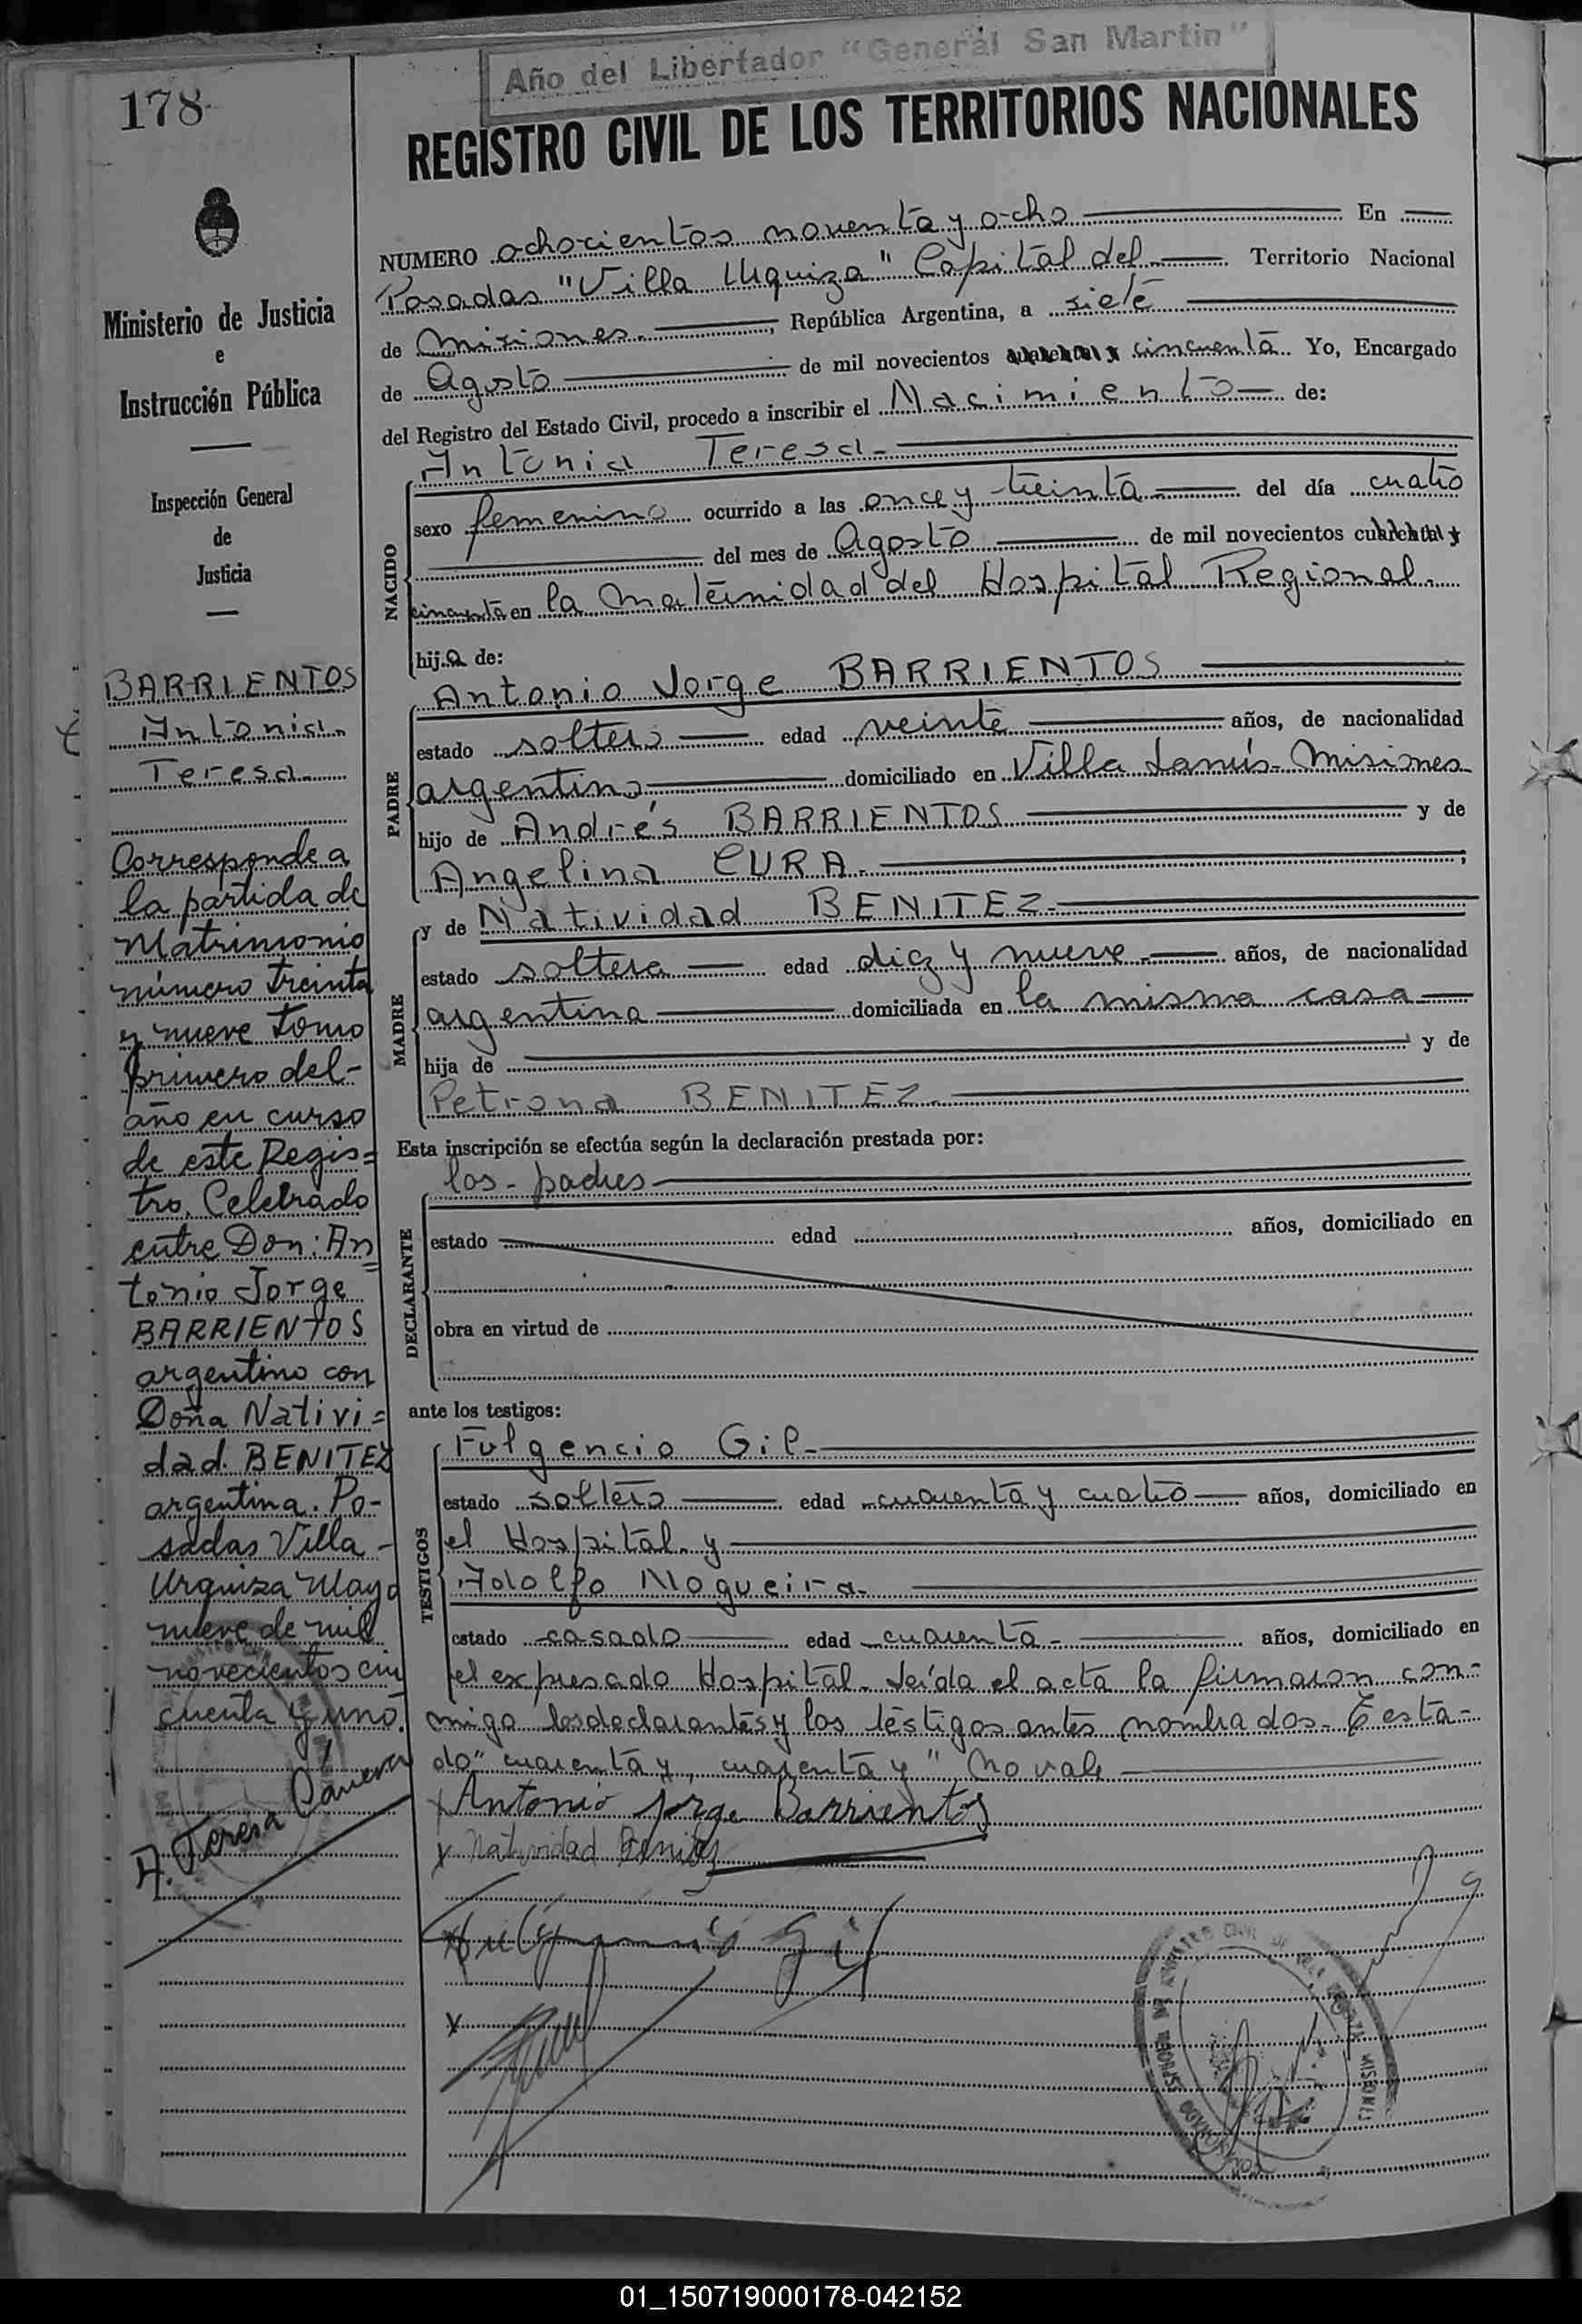 Año del Libertador "General San Martin"
178
REGISTRO CIVIL DE LOS TERRITORIOS NACIONALES
Ministerio de Justicia
e
Instrucción Pública
Inspección General
de
Justicia
BARRIENTOS
Antonia
Teresa
Corresponde a
la partida de
Matrimonio
número treinta
y nueve Tomo
primero del-
año en curso
de este Regis=
tro. Celebrado
entre Don: An=
tonio Jorge
BARRIENTOS
argentino con
Doña Nativi=
dad. BENITEZ
argentina. Po-
sadas Villa-
Urquiza Mayo
nueve de mil
novecientos cin
cuenta y uno.
NUMERO ochocientos noventa y ocho En
Posadas "Villa Urquiza" Capital del Territorio Nacional
de Misiones, República Argentina, a siete
de Agosto de mil novecientos cuarenta y cincuenta. Yo, Encargado
del Registro del Estado Civil, procedo a inscribir el Nacimiento de:
Antonia Teresa
NACIDO
sexo femenino ocurrido a las once y treinta del día cuatro
del mes de Agosto de mil novecientos cuarenta y
cincuenta en la Maternidad del Hospital Regional.
hija de:
Antonio Jorge BARRIENTOS
PADRE
estado soltero edad veinte años, de nacionalidad
argentino domiciliado en Villa Lanús- Misiones
hijo de Andrés BARRIENTOS y de
Angelina CURA ;
y de Natividad BENITEZ
MADRE
estado soltera edad diez y nueve años, de nacionalidad
argentina domiciliada en la misma casa
hija de y de
Petrona BENITEZ
Esta inscripción se efectúa según la declaración prestada por:
los padres
DECLARANTE
estado edad años, domiciliado en
obra en virtud de
ante los testigos:
Fulgencio Gil
TESTIGOS
estado soltero edad cuarenta y cuatro años, domiciliado en
el Hospital y
Adolfo Nogueira
estado casado edad cuarenta años, domiciliado en
el expresado Hospital. Leída el acta la firmaron con-
migo los declarantes y los testigos antes nombrados. Testa-
do "cuarenta y, cuarenta y" No vale
x Antonio Jorge Barrientos
x Natividad Benitez
A. Teresa
x Fulgencio Gil
x
01_150719000178-042152